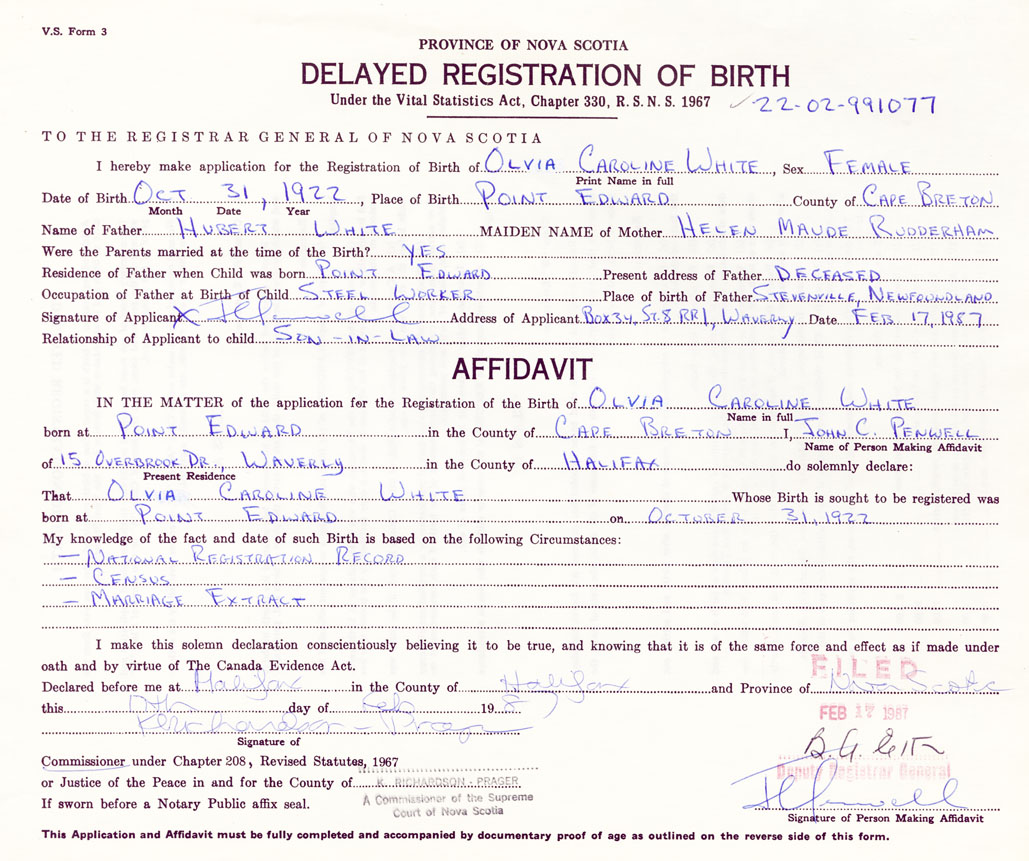 V.S. Form 3
PROVINCE OF NOVA SCOTIA
DELAYED REGISTRATION OF BIRTH
Under the Vital Statistics Act, Chapter 330, R.S.N.S. 1967 ✓22-02-991077
TO THE REGISTRAR GENERAL OF NOVA SCOTIA
I hereby make application for the Registration of Birth of OLVIA CAROLINE WHITE, Sex FEMALE
Print Name in full
Date of Birth OCT 31, 1922, Place of Birth POINT EDWARD County of CAPE BRETON
Month Date Year
Name of Father HUBERT WHITE MAIDEN NAME of Mother HELEN MAUDE RUDDERHAM
Were the Parents married at the time of the Birth? YES
Residence of Father when Child was born POINT EDWARD Present address of Father DECEASED
Occupation of Father at Birth of Child STEEL WORKER Place of birth of Father STEVENVILLE, NEWFOUNDLAND
Signature of Applicant X Address of Applicant BOX 34, St. 8 RR1, WAVERLY Date FEB 17, 1987
Relationship of Applicant to child SON-IN-LAW
AFFIDAVIT
IN THE MATTER of the application for the Registration of the Birth of OLVIA CAROLINE WHITE
Name in full
born at POINT EDWARD in the County of CAPE BRETON I, JOHN C. PENWELL
Name of Person Making Affidavit
of 15 OVERBROOK DR., WAVERLY in the County of HALIFAX do solemnly declare:
Present Residence
That OLVIA CAROLINE WHITE Whose Birth is sought to be registered was
born at POINT EDWARD on OCTOBER 31, 1922
My knowledge of the fact and date of such Birth is based on the following Circumstances:
– NATIONAL REGISTRATION RECORD
– CENSUS
– MARRIAGE EXTRACT
I make this solemn declaration conscientiously believing it to be true, and knowing that it is of the same force and effect as if made under
oath and by virtue of The Canada Evidence Act.
FILED
Declared before me at Halifax in the County of Halifax and Province of Nova Scotia
this 17th day of Feb 1987
FEB 17 1987
K Richardson-Prager
Signature of
Commissioner under Chapter 208, Revised Statutes, 1967
Deputy Registrar General
or Justice of the Peace in and for the County of K. RICHARDSON - PRAGER
A Commissioner of the Supreme
If sworn before a Notary Public affix seal.
Court of Nova Scotia
Signature of Person Making Affidavit
This Application and Affidavit must be fully completed and accompanied by documentary proof of age as outlined on the reverse side of this form.